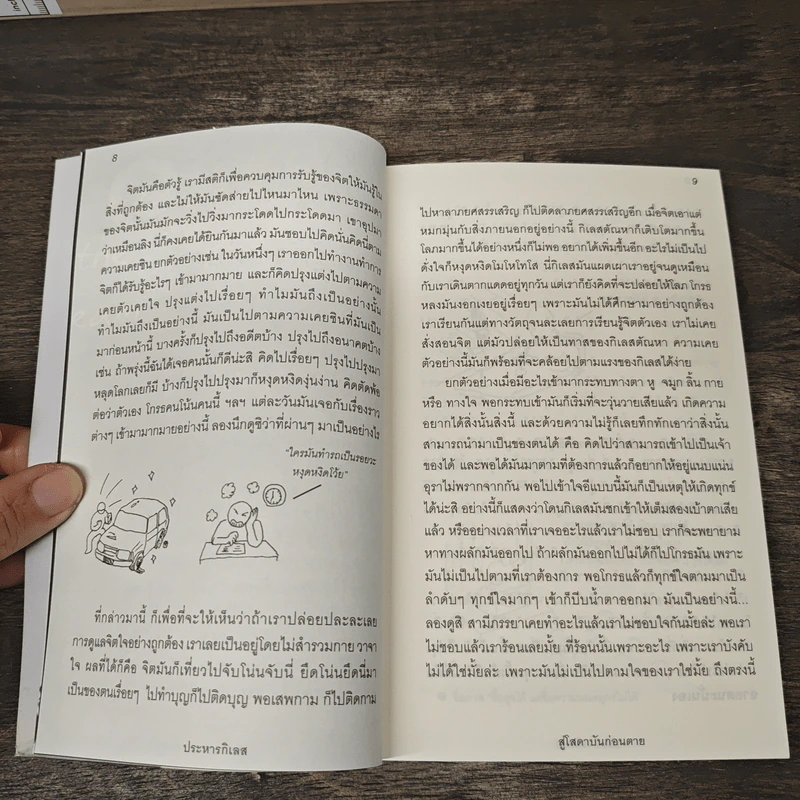 8
จิตมันคือตัวรู้ เรามีสติก็เพื่อควบคุมการรับรู้ของจิตให้มันรู้ใน
สิ่งที่ถูกต้อง และไม่ให้มันซัดส่ายไปไหนมาไหน เพราะธรรมดา
ของจิตนั้นมันมักจะวิ่งไปวิ่งมากระโดดไปกระโดดมา เขาอุปมา
ว่าเหมือนลิง นี่ก็คงเคยได้ยินกันมาแล้ว มันชอบไปคิดนั่นคิดนี่ตาม
ความเคยชิน ยกตัวอย่างเช่น ในวันหนึ่งๆ เราออกไปทำงานทำการ
จิตก็ได้รับรู้อะไรๆ เข้ามามากมาย และก็คิดปรุงแต่งไปตามความ
เคยตัวเคยใจ ปรุงแต่งไปเรื่อยๆ ทำไมมันถึงเป็นอย่างนั้น
ทำไมมันถึงเป็นอย่างนี้ มันเป็นไปตามความเคยชินที่มันเป็น
มาก่อนหน้านี้ บางครั้งก็ปรุงไปถึงอดีตบ้าง ปรุงไปถึงอนาคตบ้าง
เช่น ถ้าพรุ่งนี้ฉันได้เจอคนนั้นก็ดีน่ะสิ คิดไปเรื่อยๆ ปรุงไปปรุงมา
หลุดโลกเลยก็มี บ้างก็ปรุงไปปรุงมาก็หงุดหงิดงุ่นง่าน คิดตัดพ้อ
ต่อว่าตัวเอง โกรธคนโน้นคนนี้ ฯลฯ แต่ละวันมันเจอกับเรื่องราว
ต่างๆ เข้ามามากมายอย่างนี้ ลองนึกดูซิว่าที่ผ่านๆ มาเป็นอย่างไร
"ใครมันทำรถเป็นรอยวะ
หงุดหงิดโว้ย"
ที่กล่าวมานี้ ก็เพื่อที่จะให้เห็นว่าถ้าเราปล่อยปละละเลย
การดูแลจิตใจอย่างถูกต้อง เราเลยเป็นอยู่โดยไม่สำรวมกาย วาจา
ใจ ผลที่ได้ก็คือ จิตมันก็เที่ยวไปจับโน่นจับนี่ ยึดโน่นยึดนี่มา
เป็นของตนเรื่อยๆ ไปทำบุญก็ไปติดบุญ พอเสพกาม ก็ไปติดกาม
ประหารกิเลส
9
ไปหาลาภยศสรรเสริญ ก็ไปติดลาภยศสรรเสริญอีก เมื่อจิตเอาแต่
หมกมุ่นกับสิ่งภายนอกอยู่อย่างนี้ กิเลสตัณหาก็เติบโตมากขึ้น
โลภมากขึ้นได้อย่างหนึ่งก็ไม่พอ อยากได้เพิ่มขึ้นอีก อะไรไม่เป็นไป
ดั่งใจก็หงุดหงิดโมโหโทโส นี่กิเลสมันแผดเผาเราอยู่จนดูเหมือน
กับเราเดินตากแดดอยู่ทุกวัน แต่เราก็ยังคิดที่จะปล่อยให้โลภ โกรธ
หลงมันงอกเงยอยู่เรื่อยๆ เพราะมันไม่ได้ศึกษามาอย่างถูกต้อง
เราเรียนกันแต่ทางวัตถุจนละเลยการเรียนรู้จิตตัวเอง เราไม่เคย
สั่งสอนจิต แต่มัวปล่อยให้เป็นทาสของกิเลสตัณหา ความเคย
ตัวอย่างนี้มันก็พร้อมที่จะคล้อยไปตามแรงของกิเลสได้ง่าย
ยกตัวอย่างเมื่อมีอะไรเข้ามากระทบทางตา หู จมูก ลิ้น กาย
หรือ ทางใจ พอกระทบเข้ามันก็เริ่มที่จะวุ่นวายเสียแล้ว เกิดความ
อยากได้สิ่งนั้นสิ่งนี้ และด้วยความไม่รู้ก็เลยทึกทักเอาว่าสิ่งนั้น
สามารถนำมาเป็นของตนได้ คือ คิดไปว่าสามารถเข้าไปเป็นเจ้า
ของได้ และพอได้มันมาตามที่ต้องการแล้วก็อยากให้อยู่แนบแน่น
อุราไม่พรากจากกัน พอไปเข้าใจอีแบบนี้มันก็เป็นเหตุให้เกิดทุกข์
ได้น่ะสิ อย่างนี้ก็แสดงว่าโดนกิเลสมันชกเข้าให้เต็มสองเบ้าตาเสีย
แล้ว หรืออย่างเวลาที่เราเจออะไรแล้วเราไม่ชอบ เราก็จะพยายาม
หาทางผลักมันออกไป ถ้าผลักมันออกไปไม่ได้ก็ไปโกรธมัน เพราะ
มันไม่เป็นไปตามที่เราต้องการ พอโกรธแล้วก็ทุกข์ใจตามมาเป็น
ลำดับๆ ทุกข์ใจมากๆ เข้าก็บีบน้ำตาออกมา มันเป็นอย่างนี้...
ลองดูสิ สามีภรรยาเคยทำอะไรแล้วเราไม่ชอบใจกันมั้ยล่ะ พอเรา
ไม่ชอบแล้วเราร้อนเลยมั้ย ที่ร้อนนั้นเพราะอะไร เพราะเราบังคับ
ไม่ได้ใช่มั้ยล่ะ เพราะมันไม่เป็นไปตามใจของเราใช่มั้ย ถึงตรงนี้
สู่โสดาบันก่อนตาย